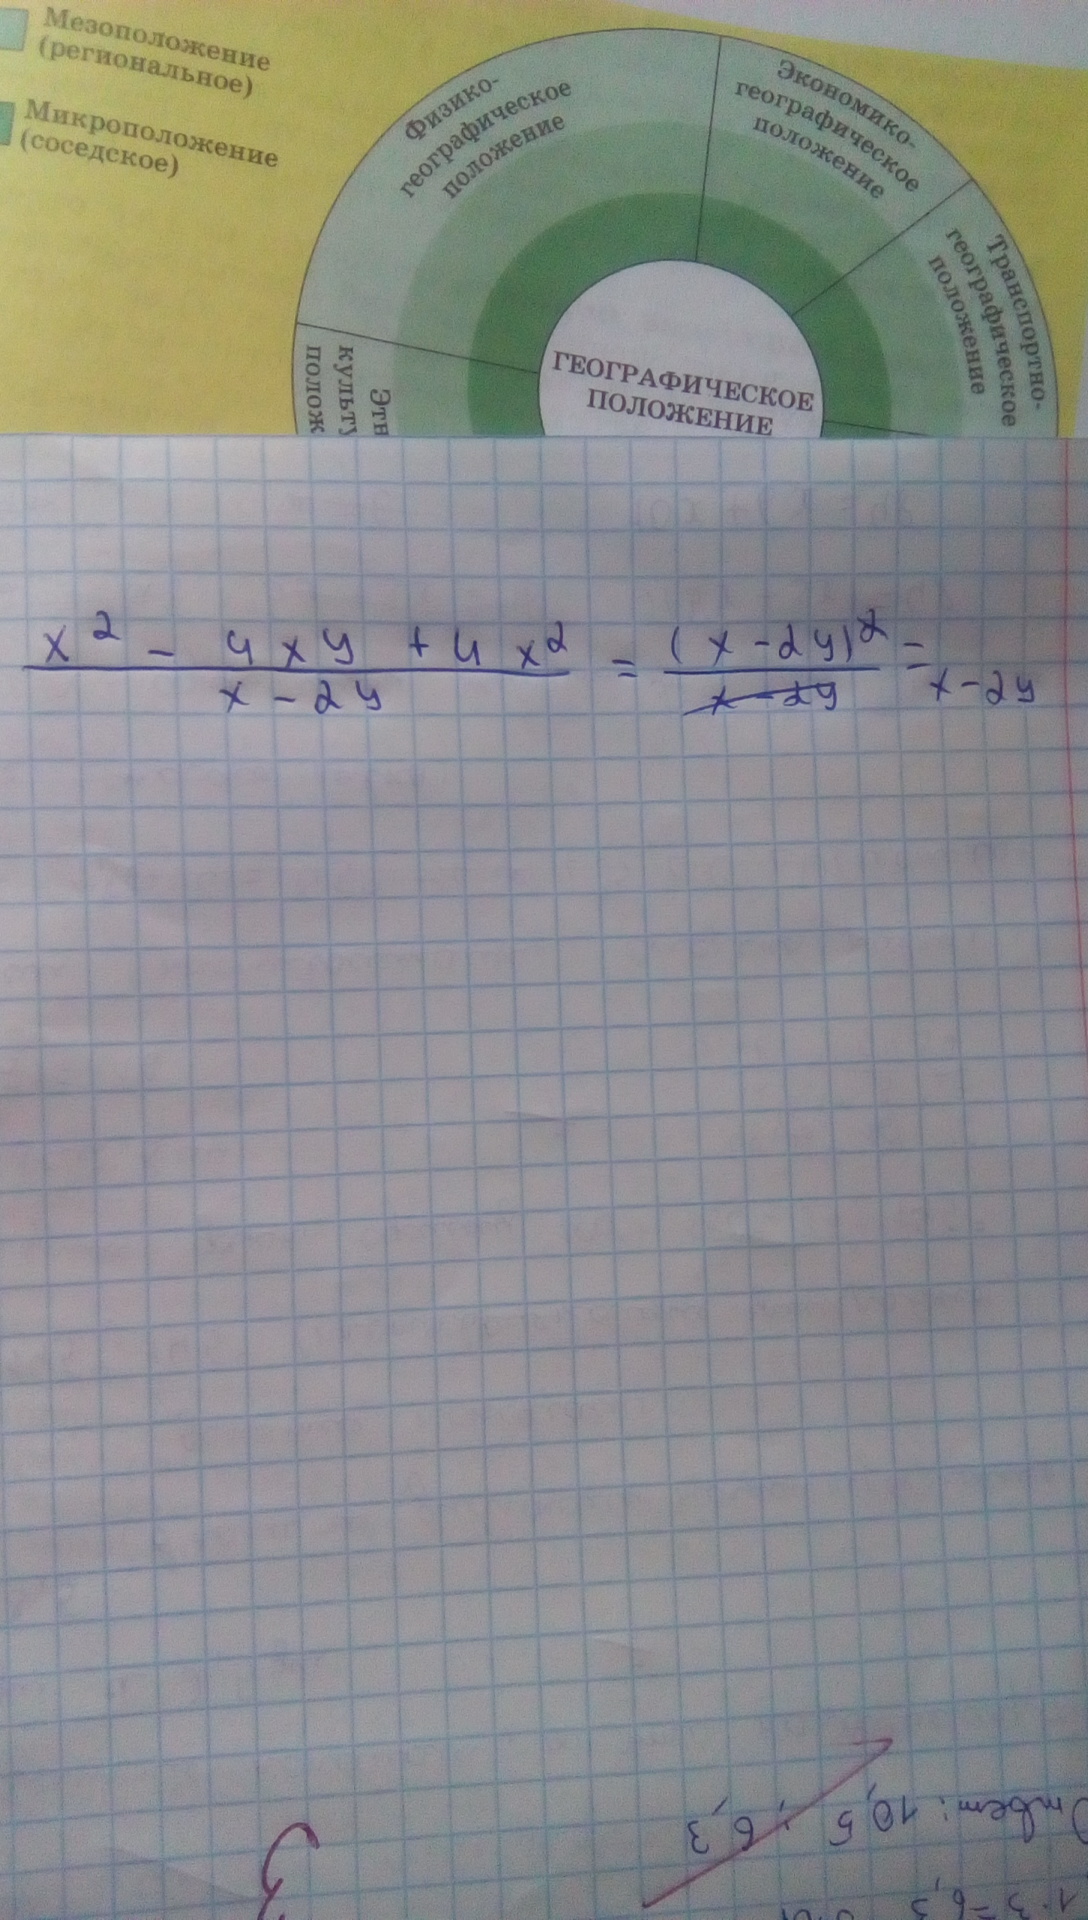 Мезоположение
(региональное)
Микроположение
(соседское)
Физико-
географическое
положение
Экономико-
географическое
положение
Транспортно-
географическое
положение
Этн
культу
полож
ГЕОГРАФИЧЕСКОЕ
ПОЛОЖЕНИЕ
x² - 4xy + 4x² / x - 2y = (x - 2y)² / x - 2y = x - 2y
Ответ: 10,5 ; 6,3
1·3=6,3